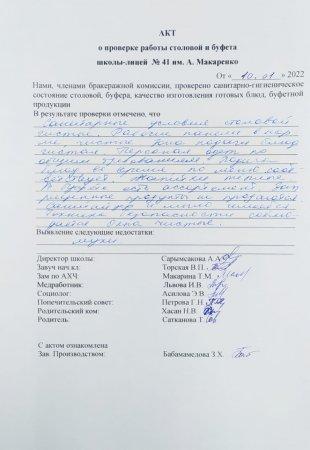 АКТ
о проверке работы столовой и буфета
школы-лицей № 41 им. А. Макаренко
От « 10.01 » 2022
Нами, членами бракеражной комиссии, проверено санитарно-гигиеническое
состояние столовой, буфера, качество изготовления готовых блюд, буфетной
продукции
В результате проверки отмечено, что
Санитарные условия столовой
чистые. Рабочие
чистые. Зона подачи блюд
чистая. Персонал одет по
общим требованиям.
блюд во время по меню
В буфете есть ассортимент
продукты не продаются
техника безопасности
Окна чистые.
Выявление следующие недостатки:
Директор школы: Сарымсакова А.А
Завуч нач.кл: Торская В.П.
Зам по АХЧ: Макарина Т.М.
Медработник: Львова И.В.
Социолог: Асилова Э.В
Попечительский совет: Петрова Г.Н
Родительский ком: Хасан Н.В
Родитель: Сатканова Т
С актом ознакомлена
Зав. Производством: Бабамамедова З.Х.